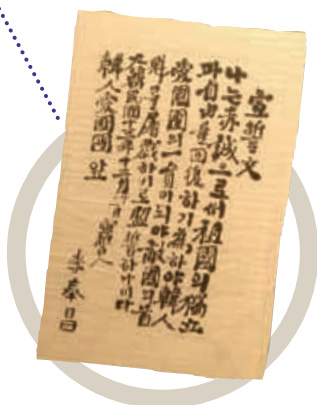 宣誓文
나는赤誠으로써祖國의獨立
과自由를回復하기爲하야韓人
愛國團의一員이되야敵國의首
魁를屠戮하기로盟誓하나이다
大韓民國十三年十二月 日 宣誓人
韓人愛國團앞 李奉昌